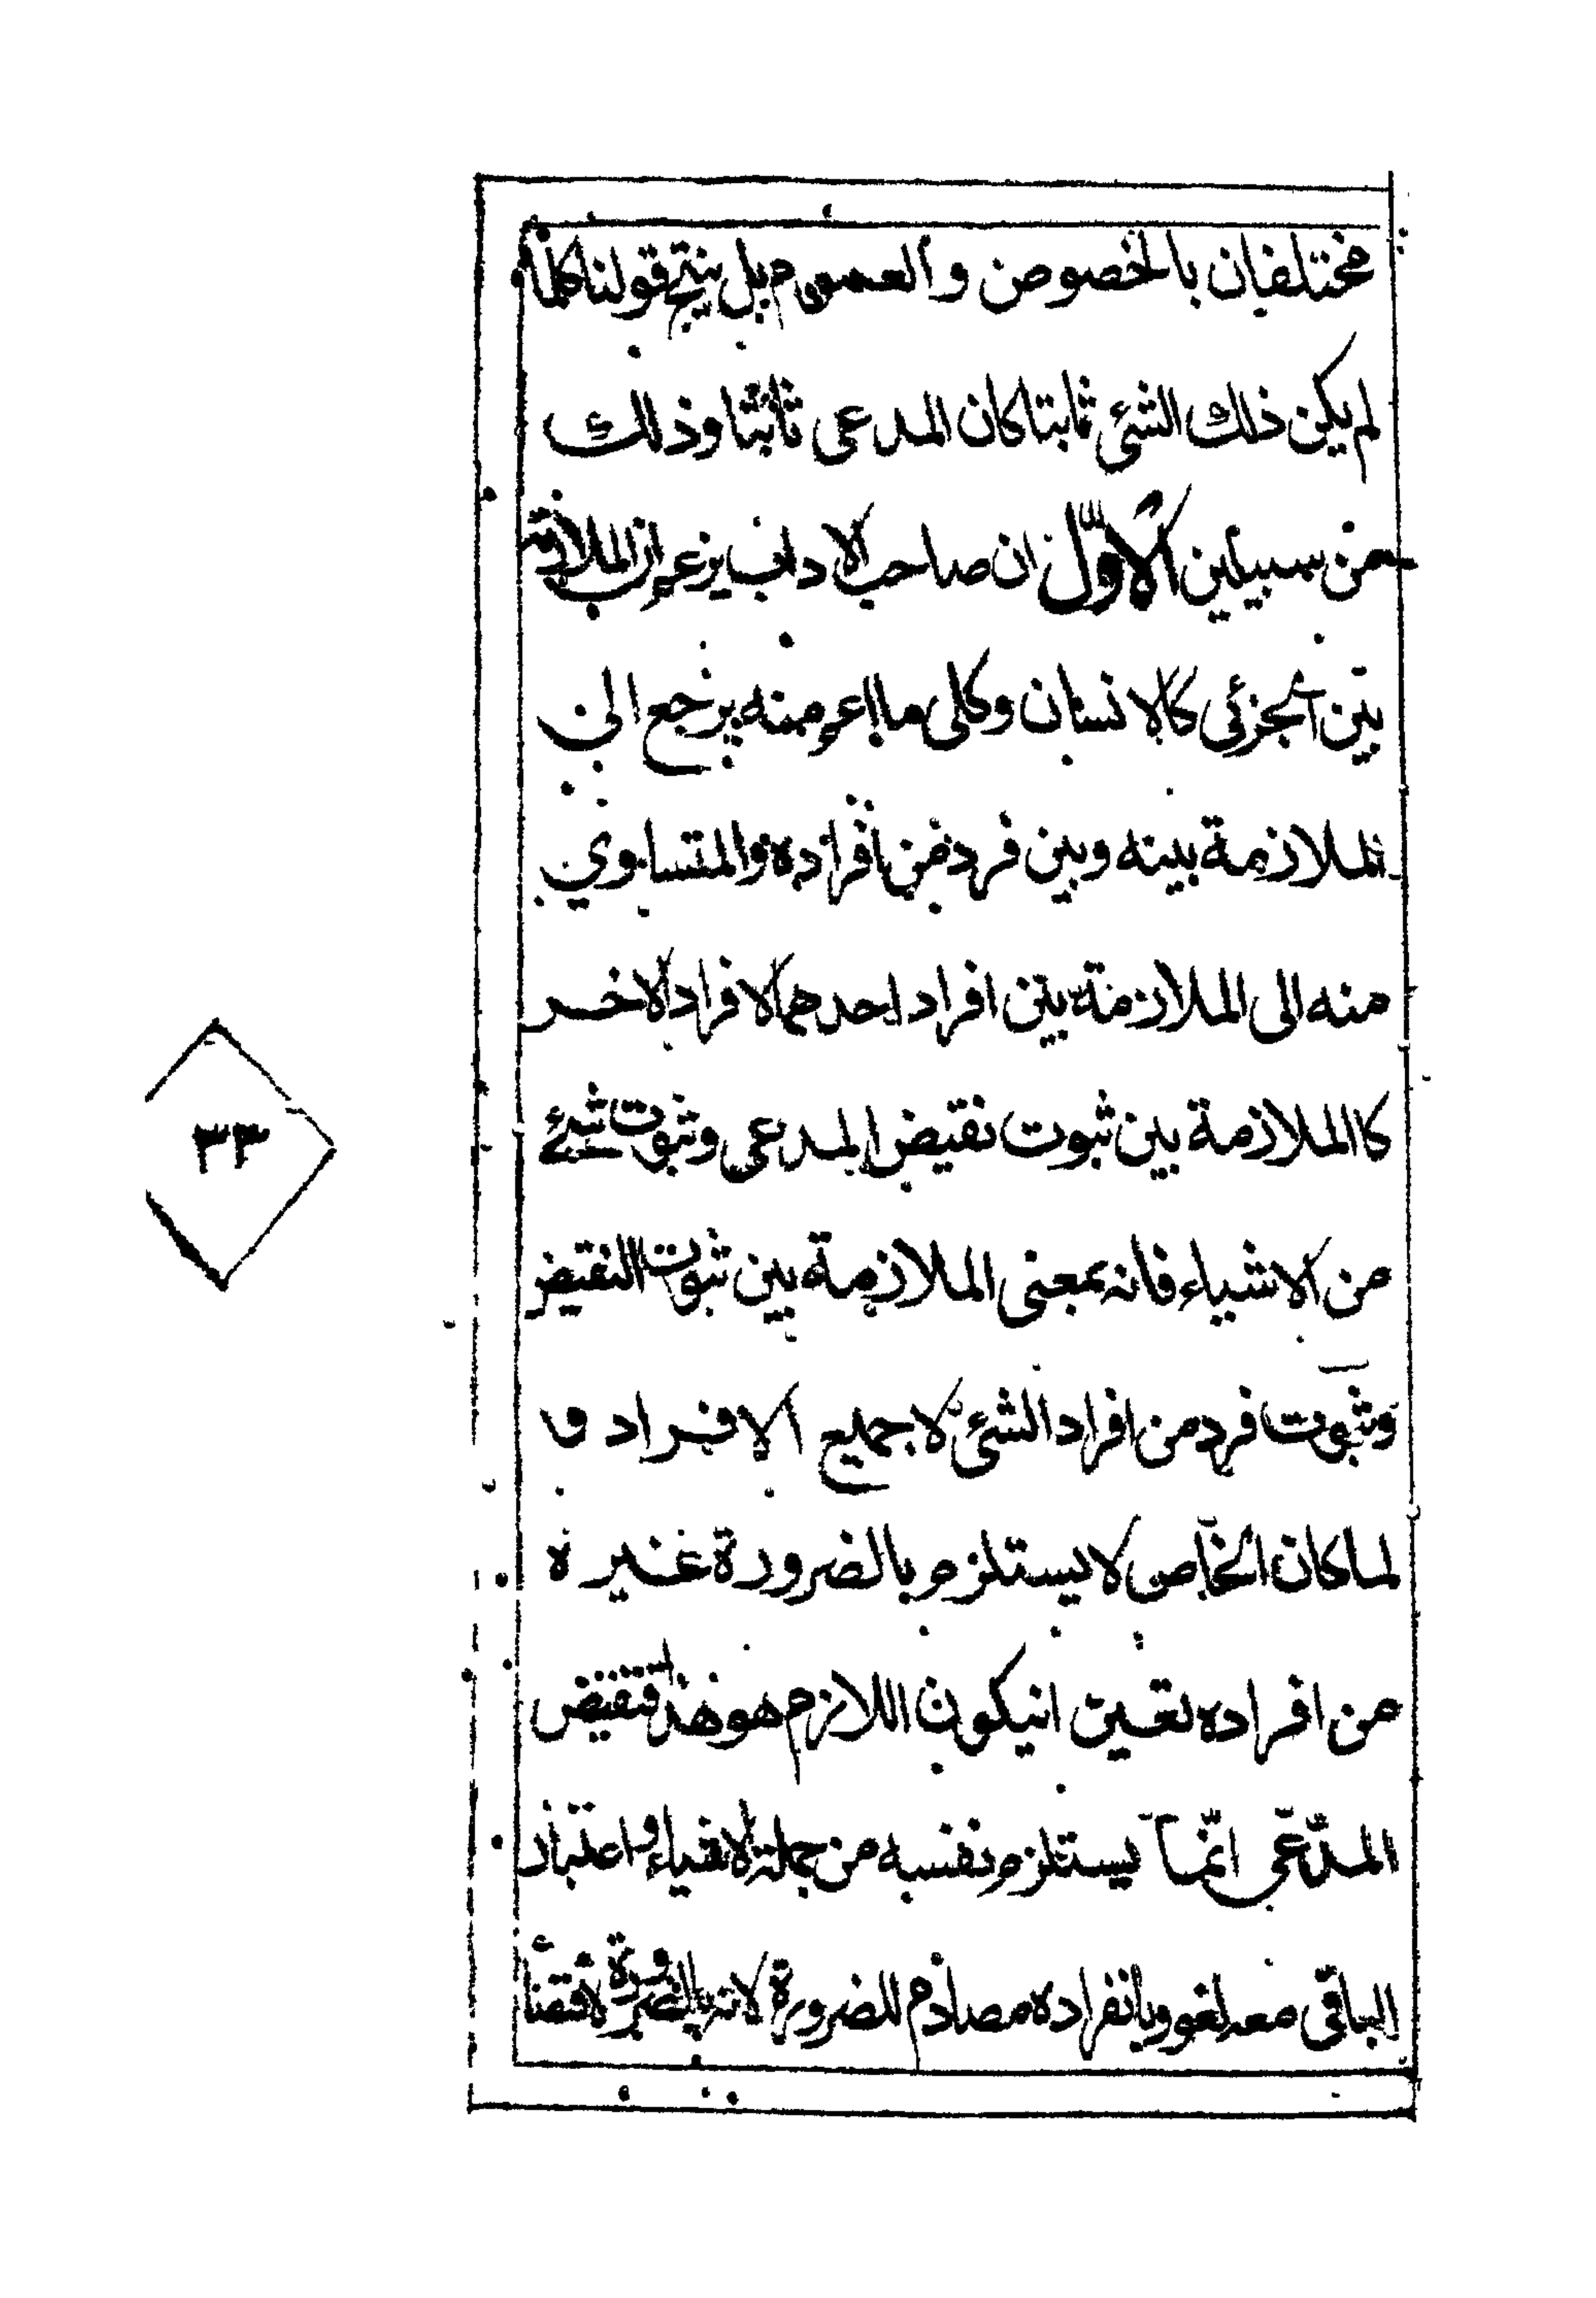 مختلفان بالخصوص والعموم بل ينتج قولنا كلما
لم يكن ذلك الشئ ثابتا كان المدعى ثابتا وذلك
من سبيلين الاوّل ان صاحب الاداب يزعم ان الملازمة
بين الجزئى كالانسان وكلى ما اعم منه يرجع الى
الملازمة بينه وبين فرد من افراده والمتساوي
منه الى الملازمة بين افراد احدهما لافراد الاخر
كالملازمة بين ثبوت نقيض المدعى وثبوت شئ
من الاشياء فانه بمعنى الملازمة بين ثبوت النقيض
وثبوت فرد من افراد الشئ لا جميع الافراد و
لما كان الخاص لا يستلزم بالضرورة غيره
من افراده تعين انيكون اللازم هو هذا فنقيض
المدّعى انّما يستلزم نفسه من جملة الاشياء واعتبار
الباقى معه لغو وبانفراده مصادم للضرورة لانه بالضرورة
٣٣